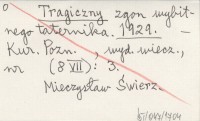 o Tragiczny zgon wybit-
nego taternika. 1929. –
Kur. Pozn., wyd. wiecz.,
nr (8 VII): 3.
Mieczysław Świerz.